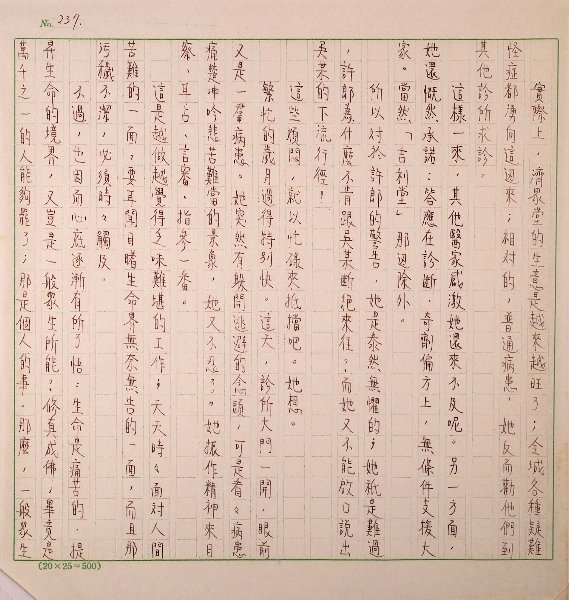 No. 237.
實際上，濟眾堂的生意是越來越旺了；全城各種疑難
怪症都湧向這邊來；相對的，普通病患，她反而勸他們到
其他診所求診。
這樣一來，其他醫家感激她還來不及呢。另一方面，
她還慨然承諾：答應在診斷、奇劑偏方上，無條件支援大
家。當然「吉利堂」那邊除外。
所以對於許郎的警告，她是泰然無懼的；她祇是難過
，許郎為什麼不肯跟吳某斷絕來往？而她又不能啟口說出
吳某的下流行徑！
這些煩悶，就以忙碌來抵擋吧。她想。
繁忙的歲月過得特別快。這天，診所大門一開，眼前
又是一羣病患。她突然有躲開逃避的念頭，可是看々病患
痛楚呻吟悲苦難當的景象，她又不忍了。她振作精神來目
察、耳占、言審、指參一番。
這是越做越覺得乏味難堪的工作；天天時々面對人間
苦難的一面，要耳聞目睹生命界無奈無告的一面，而且那
污穢不潔，必須時々觸及。
不過，也因而心底逐漸有所了悟：生命是痛苦的，提
昇生命的境界，又豈是一般眾生所能？修真成佛，畢竟是
萬千之一的人能夠罷了；那是個人的事。那麼，一般眾生
(20×25=500)